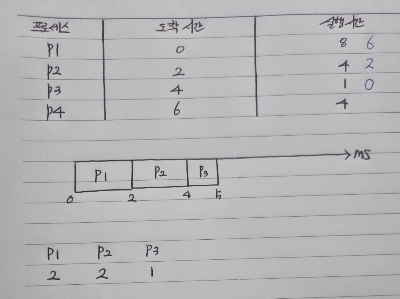 프로세스 도착 시간 실행시간
P1 0 8 6
P2 2 4 2
P3 4 1 0
P4 6 4
P1 P2 P3 ms
0 2 4 5
P1 P2 P3
2 2 1